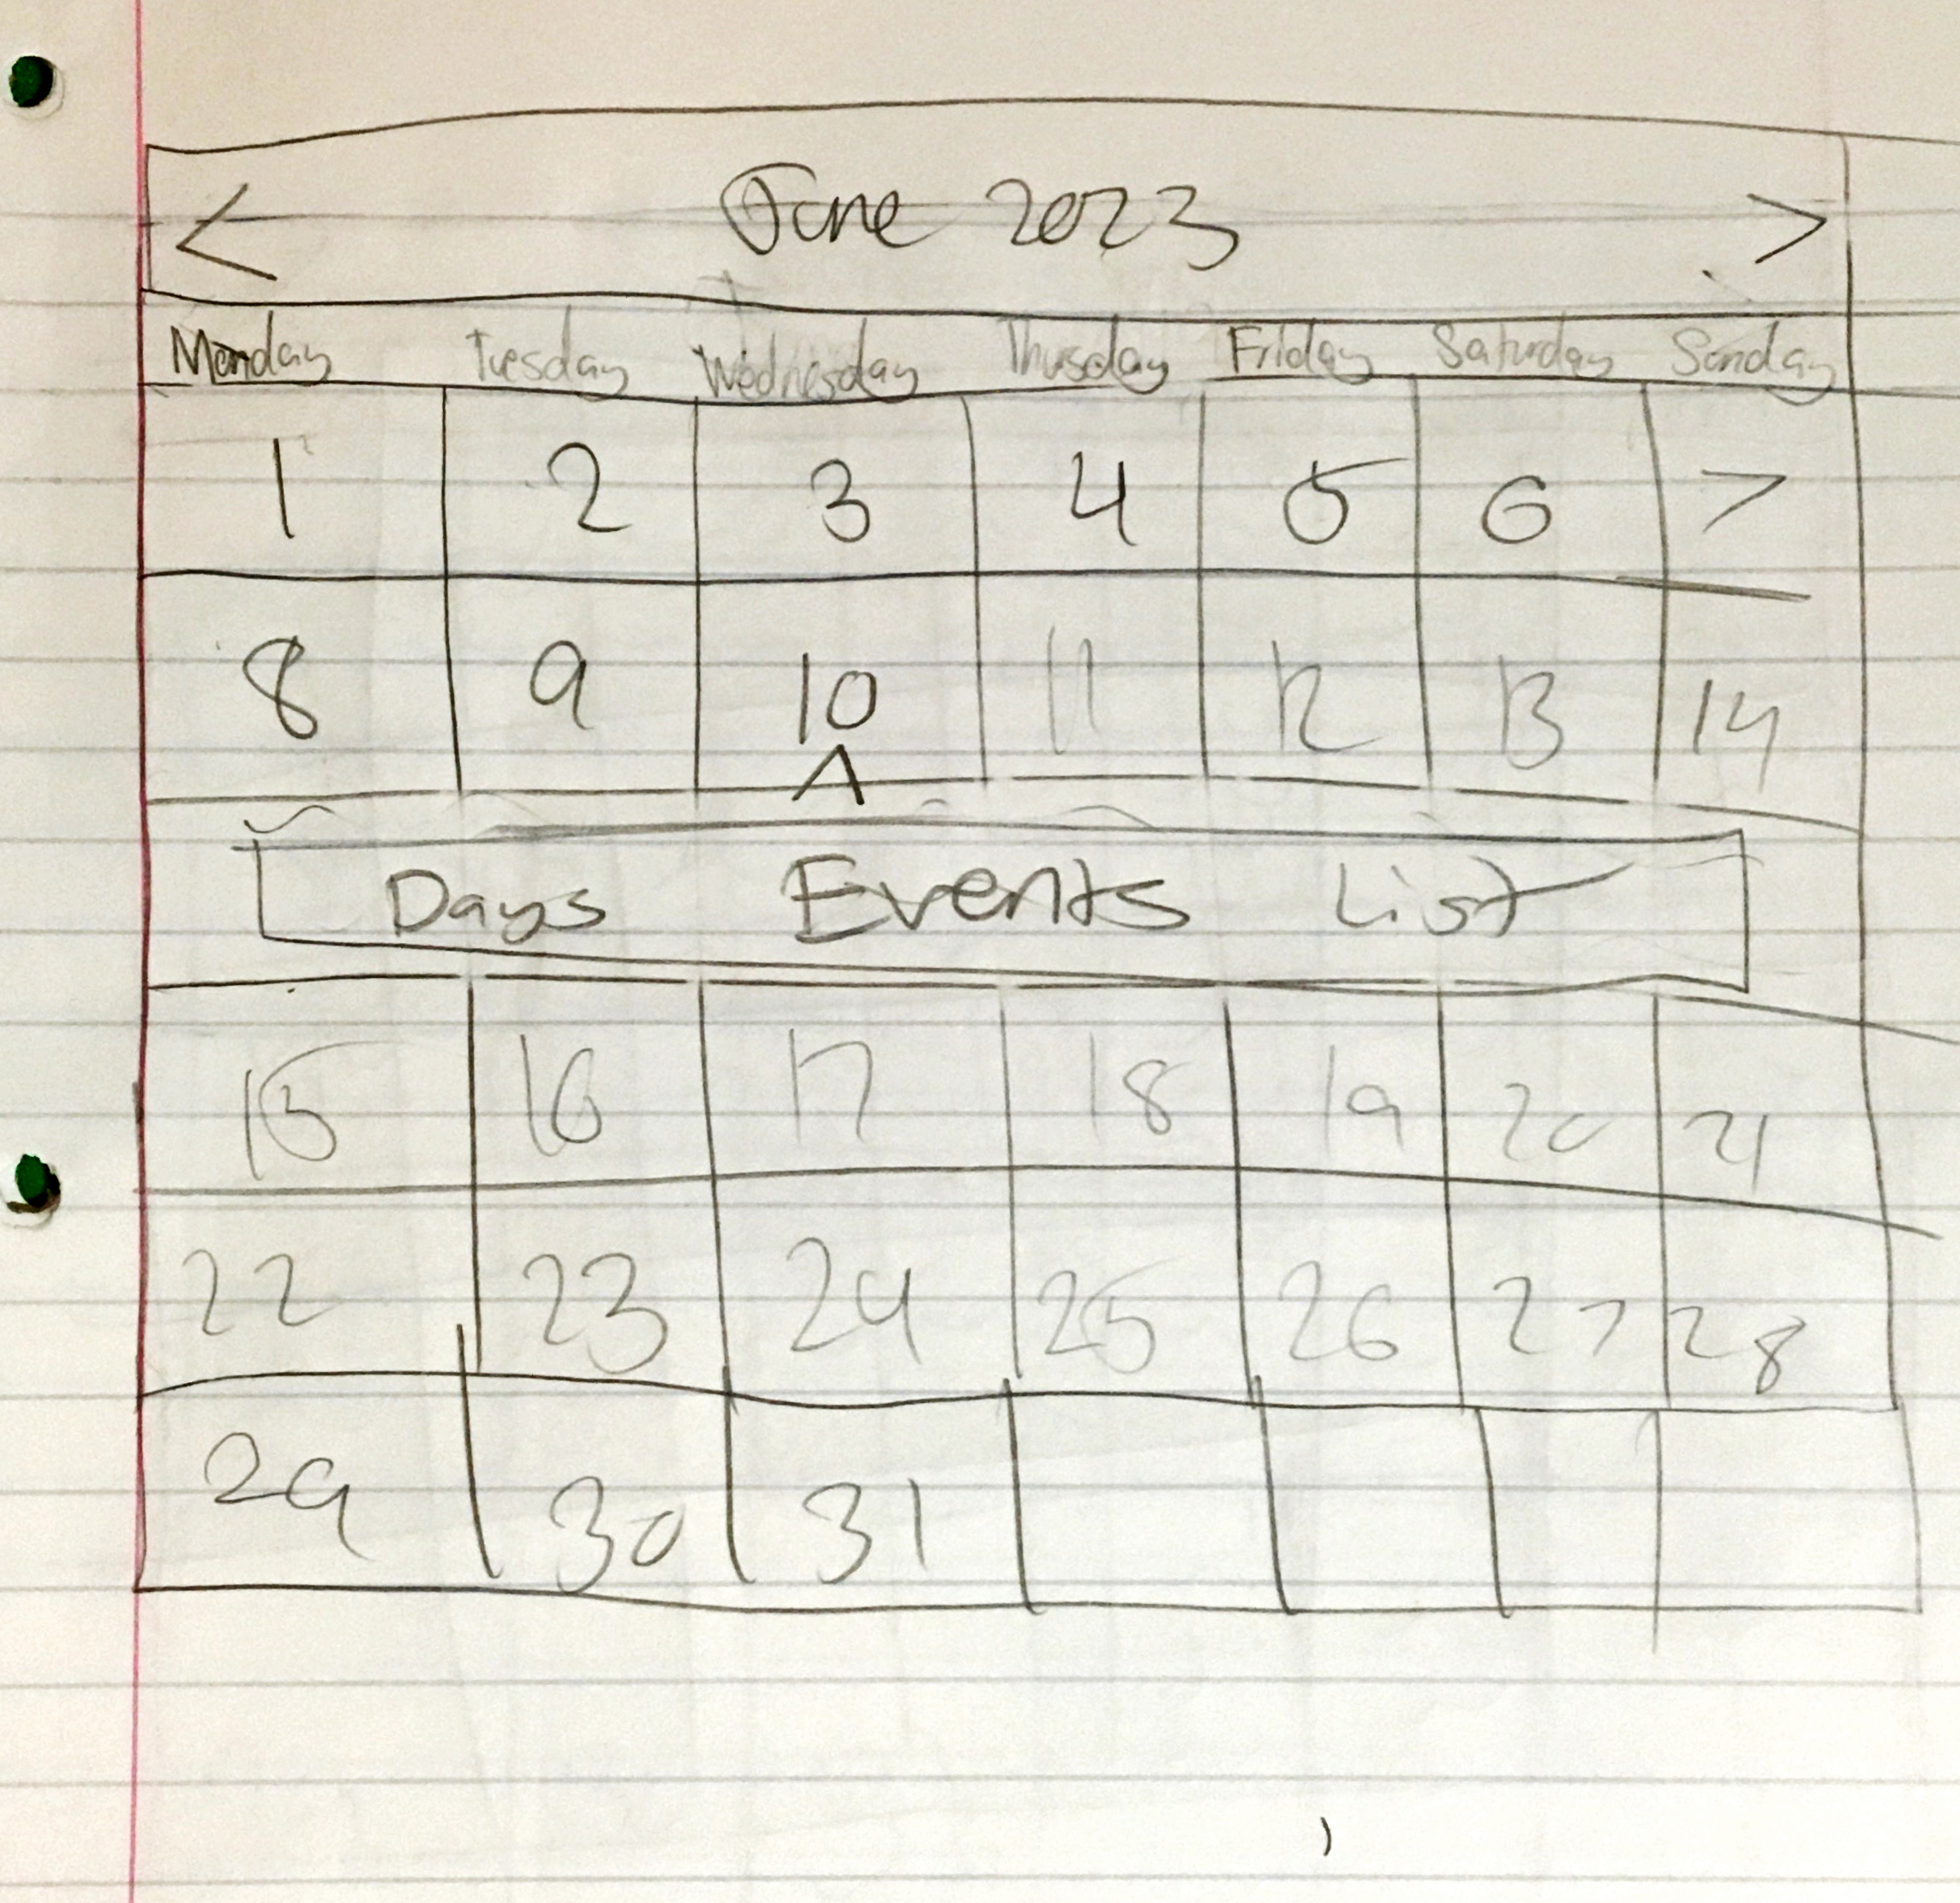 < June 2023 >
Monday Tuesday Wednesday Thursday Friday Saturday Sunday
1 2 3 4 5 6 7
8 9 10 11 12 13 14
Days Events List
15 16 17 18 19 20 21
22 23 24 25 26 27 28
29 30 31